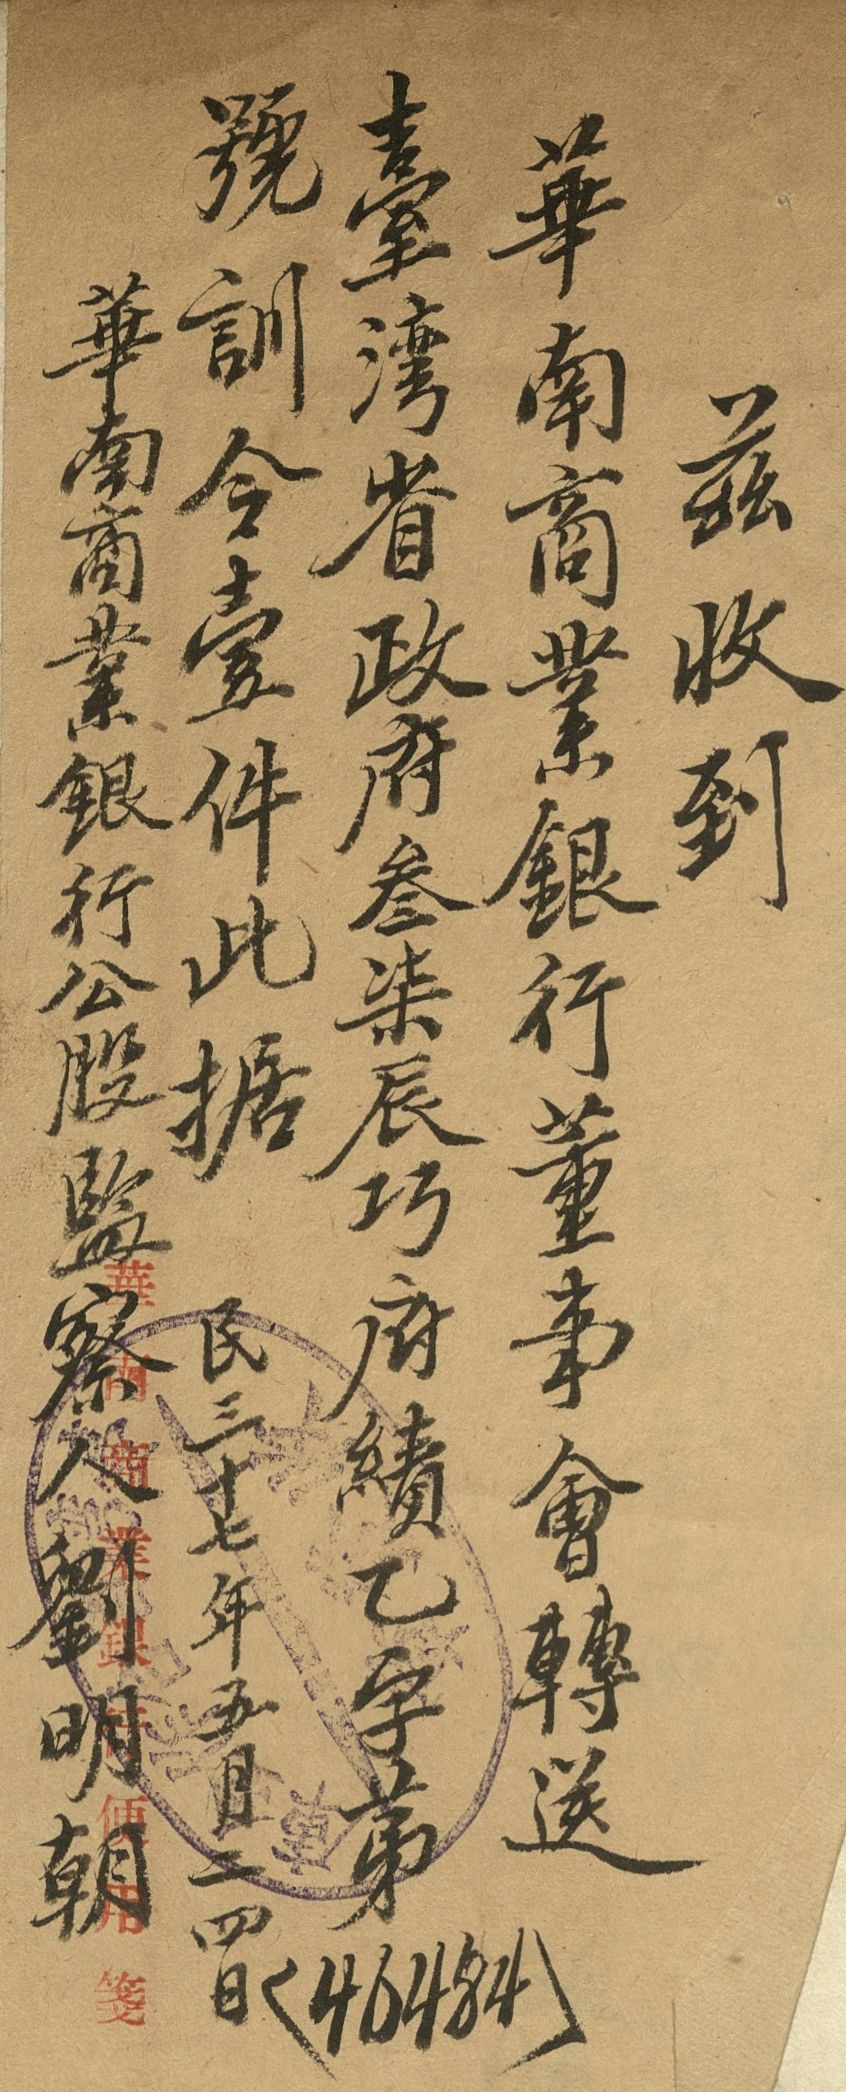 茲收到
華南商業銀行董事會轉送
臺灣省政府叁柒辰巧府績乙字第(46484)
號訓令壹件此据
民三十七年五月二四日
華南商業銀行公股監察人劉明朝
華南商業銀行便用箋